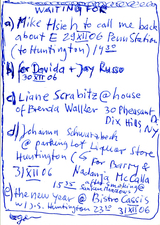 WAITING FOR
a) Mike Hsieh to call me back
about E 29 XII 06 Penn Station
(to Huntington) / 14 20
b) for Davida + Jay Russo
30 XII 06
c) Liane Scrabitz @ house
of Brenda Waller 30 Pheasant
Dix Hills NY
d) Johanna Schwarzbeck
@ parking lot Liquor Store
Huntington (G for Barry &
31 XII 06 Nadanja McCalla
15 25 after smoking @
e) the new year @ Bistro Cassis
w/ J.S. Huntington 23 30 31 XII 06